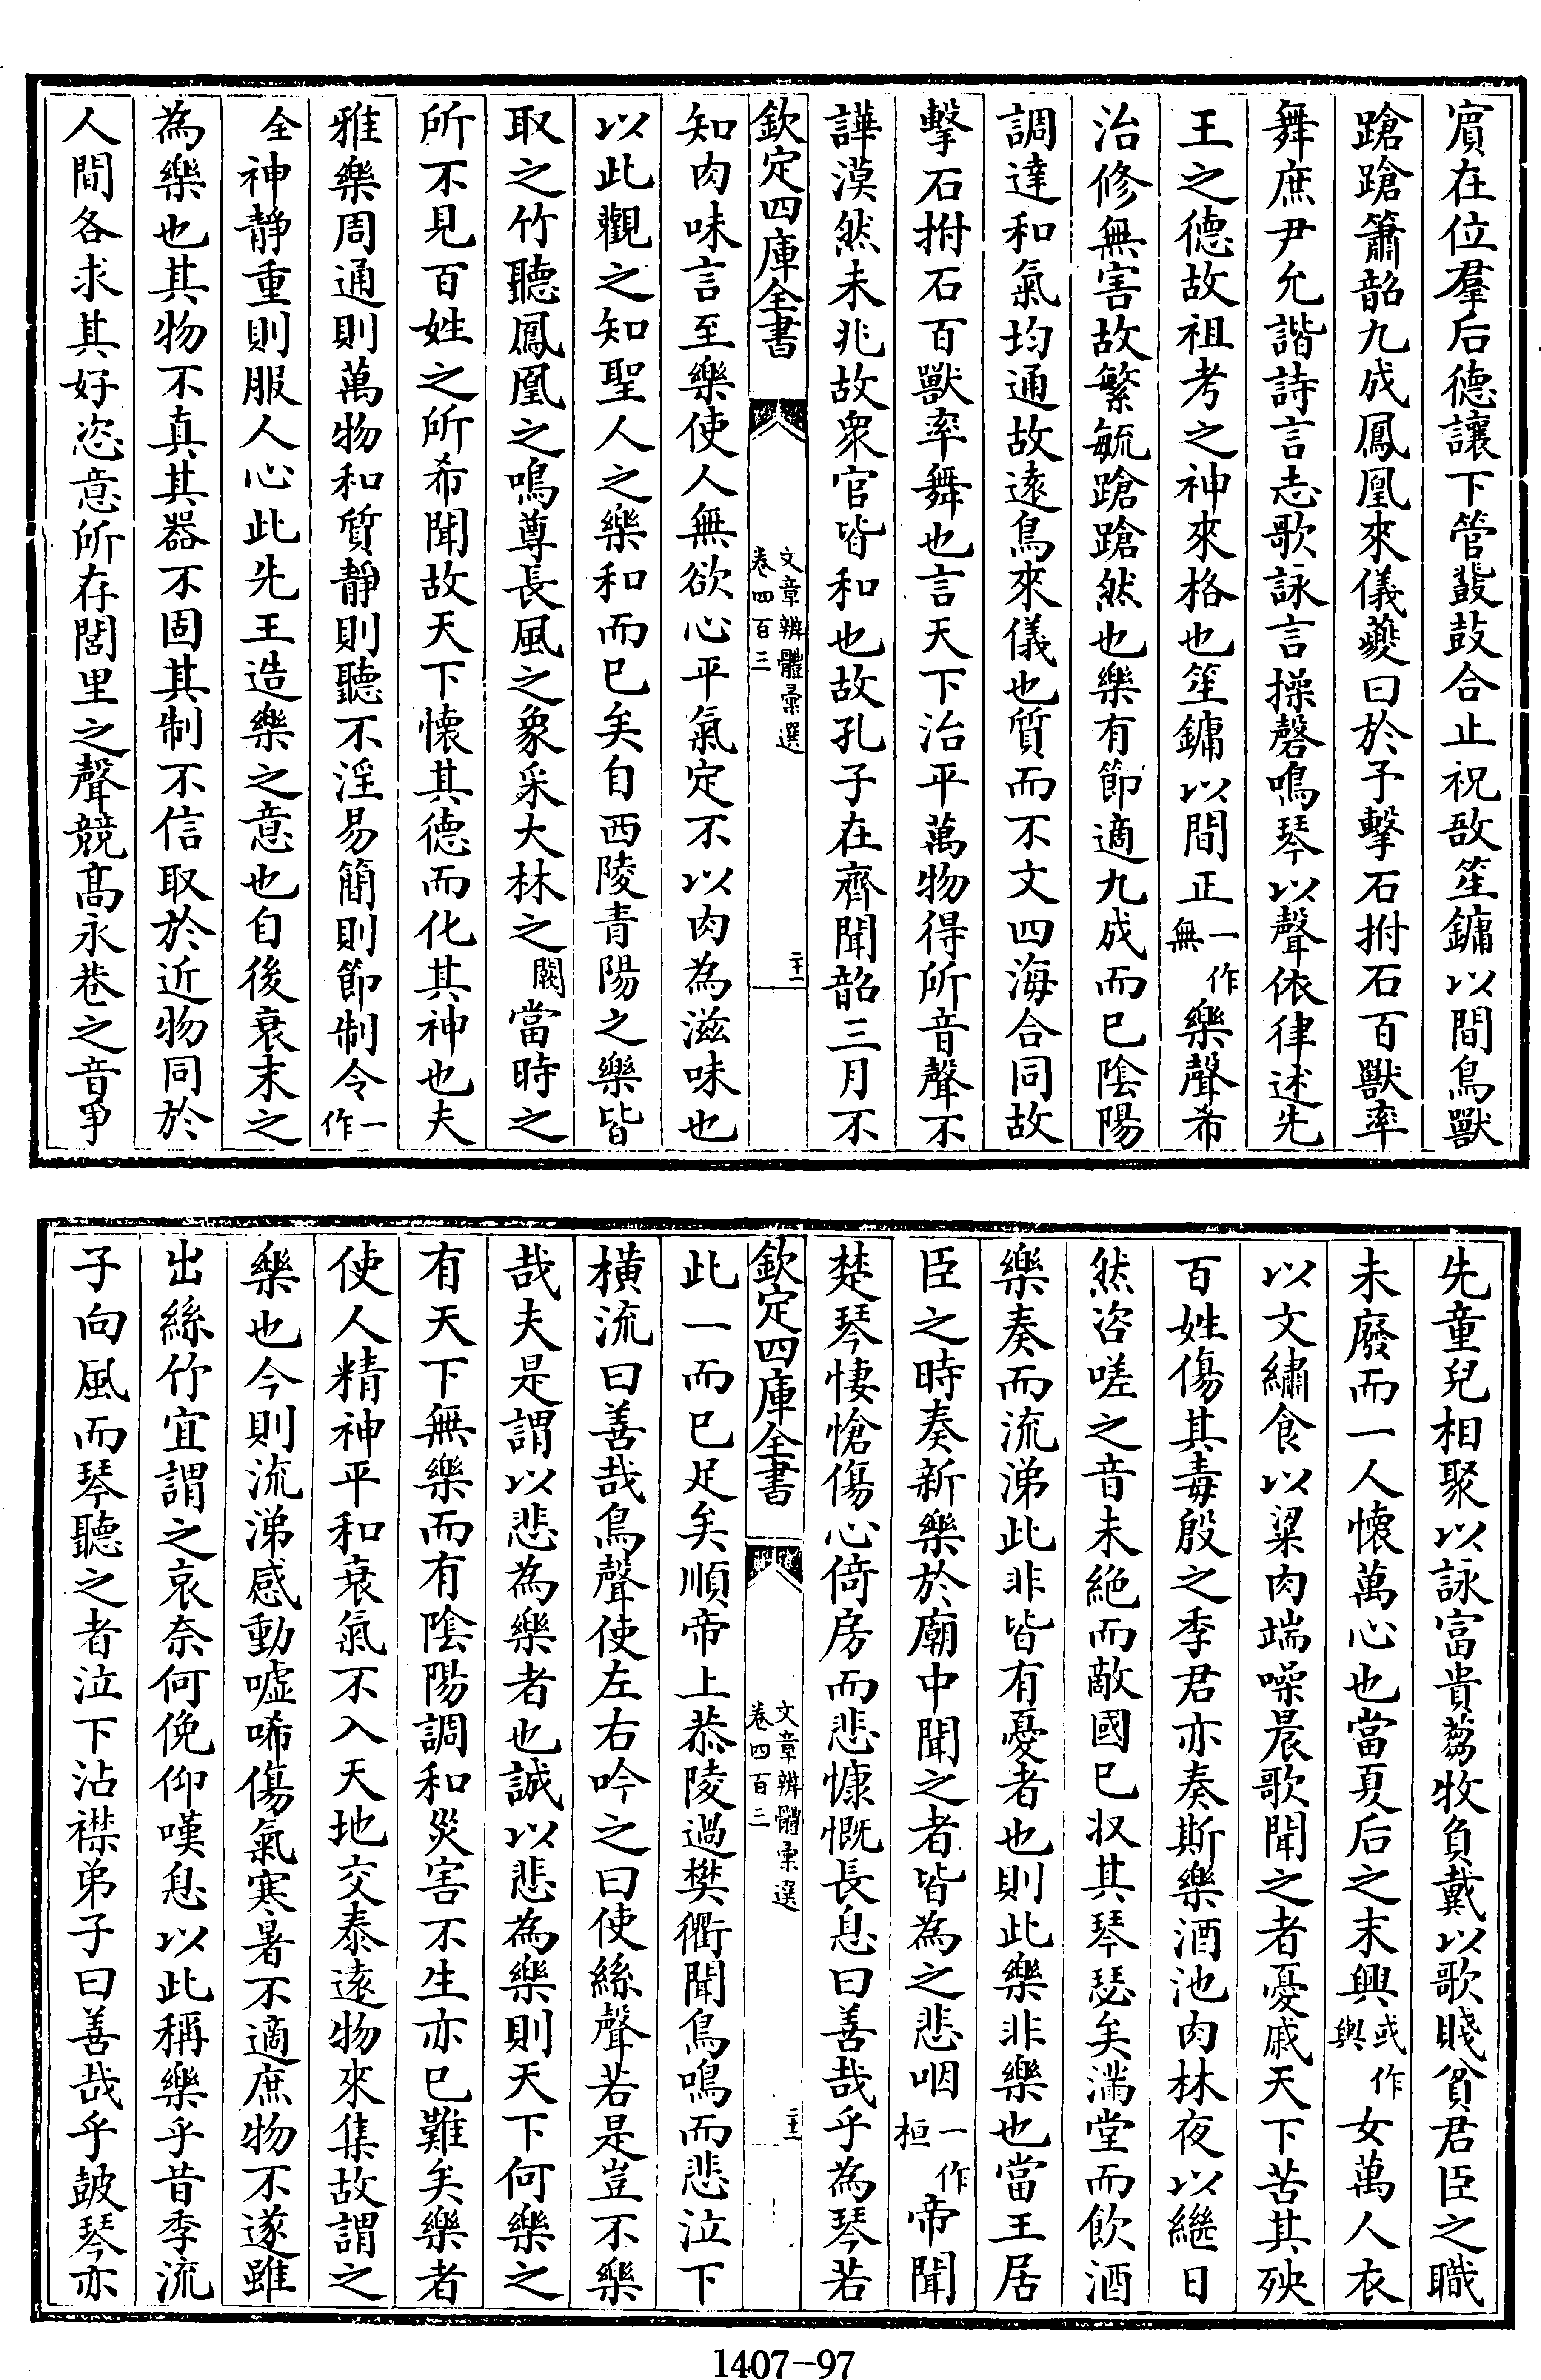 賓在位羣后德讓下管鼗鼓合止祝敔笙鏞以間鳥獸
蹌蹌簫韶九成鳳凰來儀夔曰於予擊石拊石百獸率
舞庶尹允諧詩言志歌詠言操磬鳴琴以聲依律述先
王之德故祖考之神來格也笙鏞以間正一作無樂聲希
治修無害故繁毓蹌蹌然也樂有節適九成而已陰陽
調達和氣均通故遠鳥來儀也質而不文四海合同故
擊石拊石百獸率舞也言天下治平萬物得所音聲不
譁漠然未兆故衆官皆和也故孔子在齊聞韶三月不
欽定四庫全書 文章辨體彙選 卷四百三 二十一
知肉味言至樂使人無欲心平氣定不以肉為滋味也
以此觀之知聖人之樂和而已矣自西陵青陽之樂皆
取之竹聽鳳凰之鳴尊長風之象采大林之闕當時之
所不見百姓之所希聞故天下懷其德而化其神也夫
雅樂周通則萬物和質靜則聽不淫易簡則節制令一作
全神靜重則服人心此先王造樂之意也自後衰末之
為樂也其物不真其器不固其制不信取於近物同於
人間各求其好恣意所存閭里之聲競髙永巷之音爭
先童兒相聚以詠富貴芻牧負戴以歌賤貧君臣之職
未廢而一人懷萬心也當夏后之末興或作輿女萬人衣
以文繡食以粱肉端噪晨歌聞之者憂戚天下苦其殃
百姓傷其毒殷之季君亦奏斯樂酒池肉林夜以繼日
然咨嗟之音未絶而敵國已収其琴瑟矣滿堂而飲酒
樂奏而流涕此非皆有憂者也則此樂非樂也當王居
臣之時奏新樂於廟中聞之者皆為之悲咽一作桓帝聞
楚琴悽愴傷心倚房而悲慷慨長息曰善哉乎為琴若
欽定四庫全書 文章辨體彙選 卷四百三 二十二
此一而已足矣順帝上恭陵過樊衢聞鳥鳴而悲泣下
橫流曰善哉鳥聲使左右吟之曰使絲聲若是豈不樂
哉夫是謂以悲為樂者也誠以悲為樂則天下何樂之
有天下無樂而有陰陽調和災害不生亦已難矣樂者
使人精神平和衰氣不入天地交泰遠物來集故謂之
樂也今則流涕感動噓唏傷氣寒暑不適庶物不遂雖
出絲竹宜謂之哀奈何俛仰嘆息以此稱樂乎昔季流
子向風而琴聽之者泣下沾襟弟子曰善哉乎鼓琴亦
1407-97